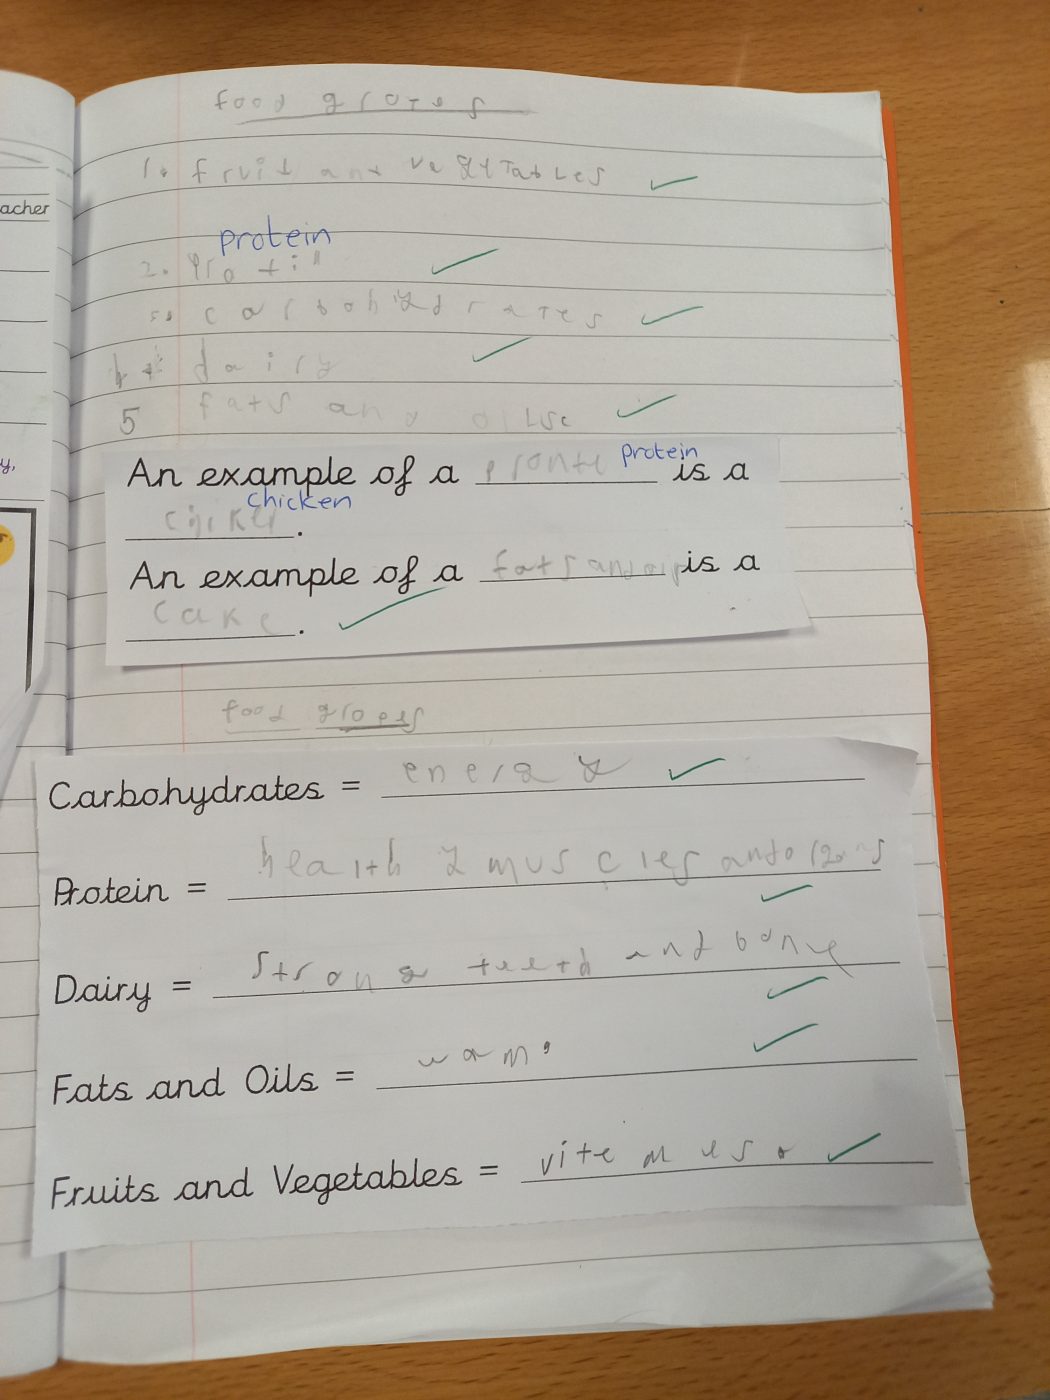 acher
y,
food grores
1. fruit and vegetables
protein
2. Protin
carbohydrates
4. dairy
5 fats and
An example of a protein is a
chicken
.
An example of a fats and is a
cake.
food gropes
Carbohydrates = energy
Protein = health y muscles and organs
Dairy = strong teeth and bone
Fats and Oils = warm.
Fruits and Vegetables = vitemes.